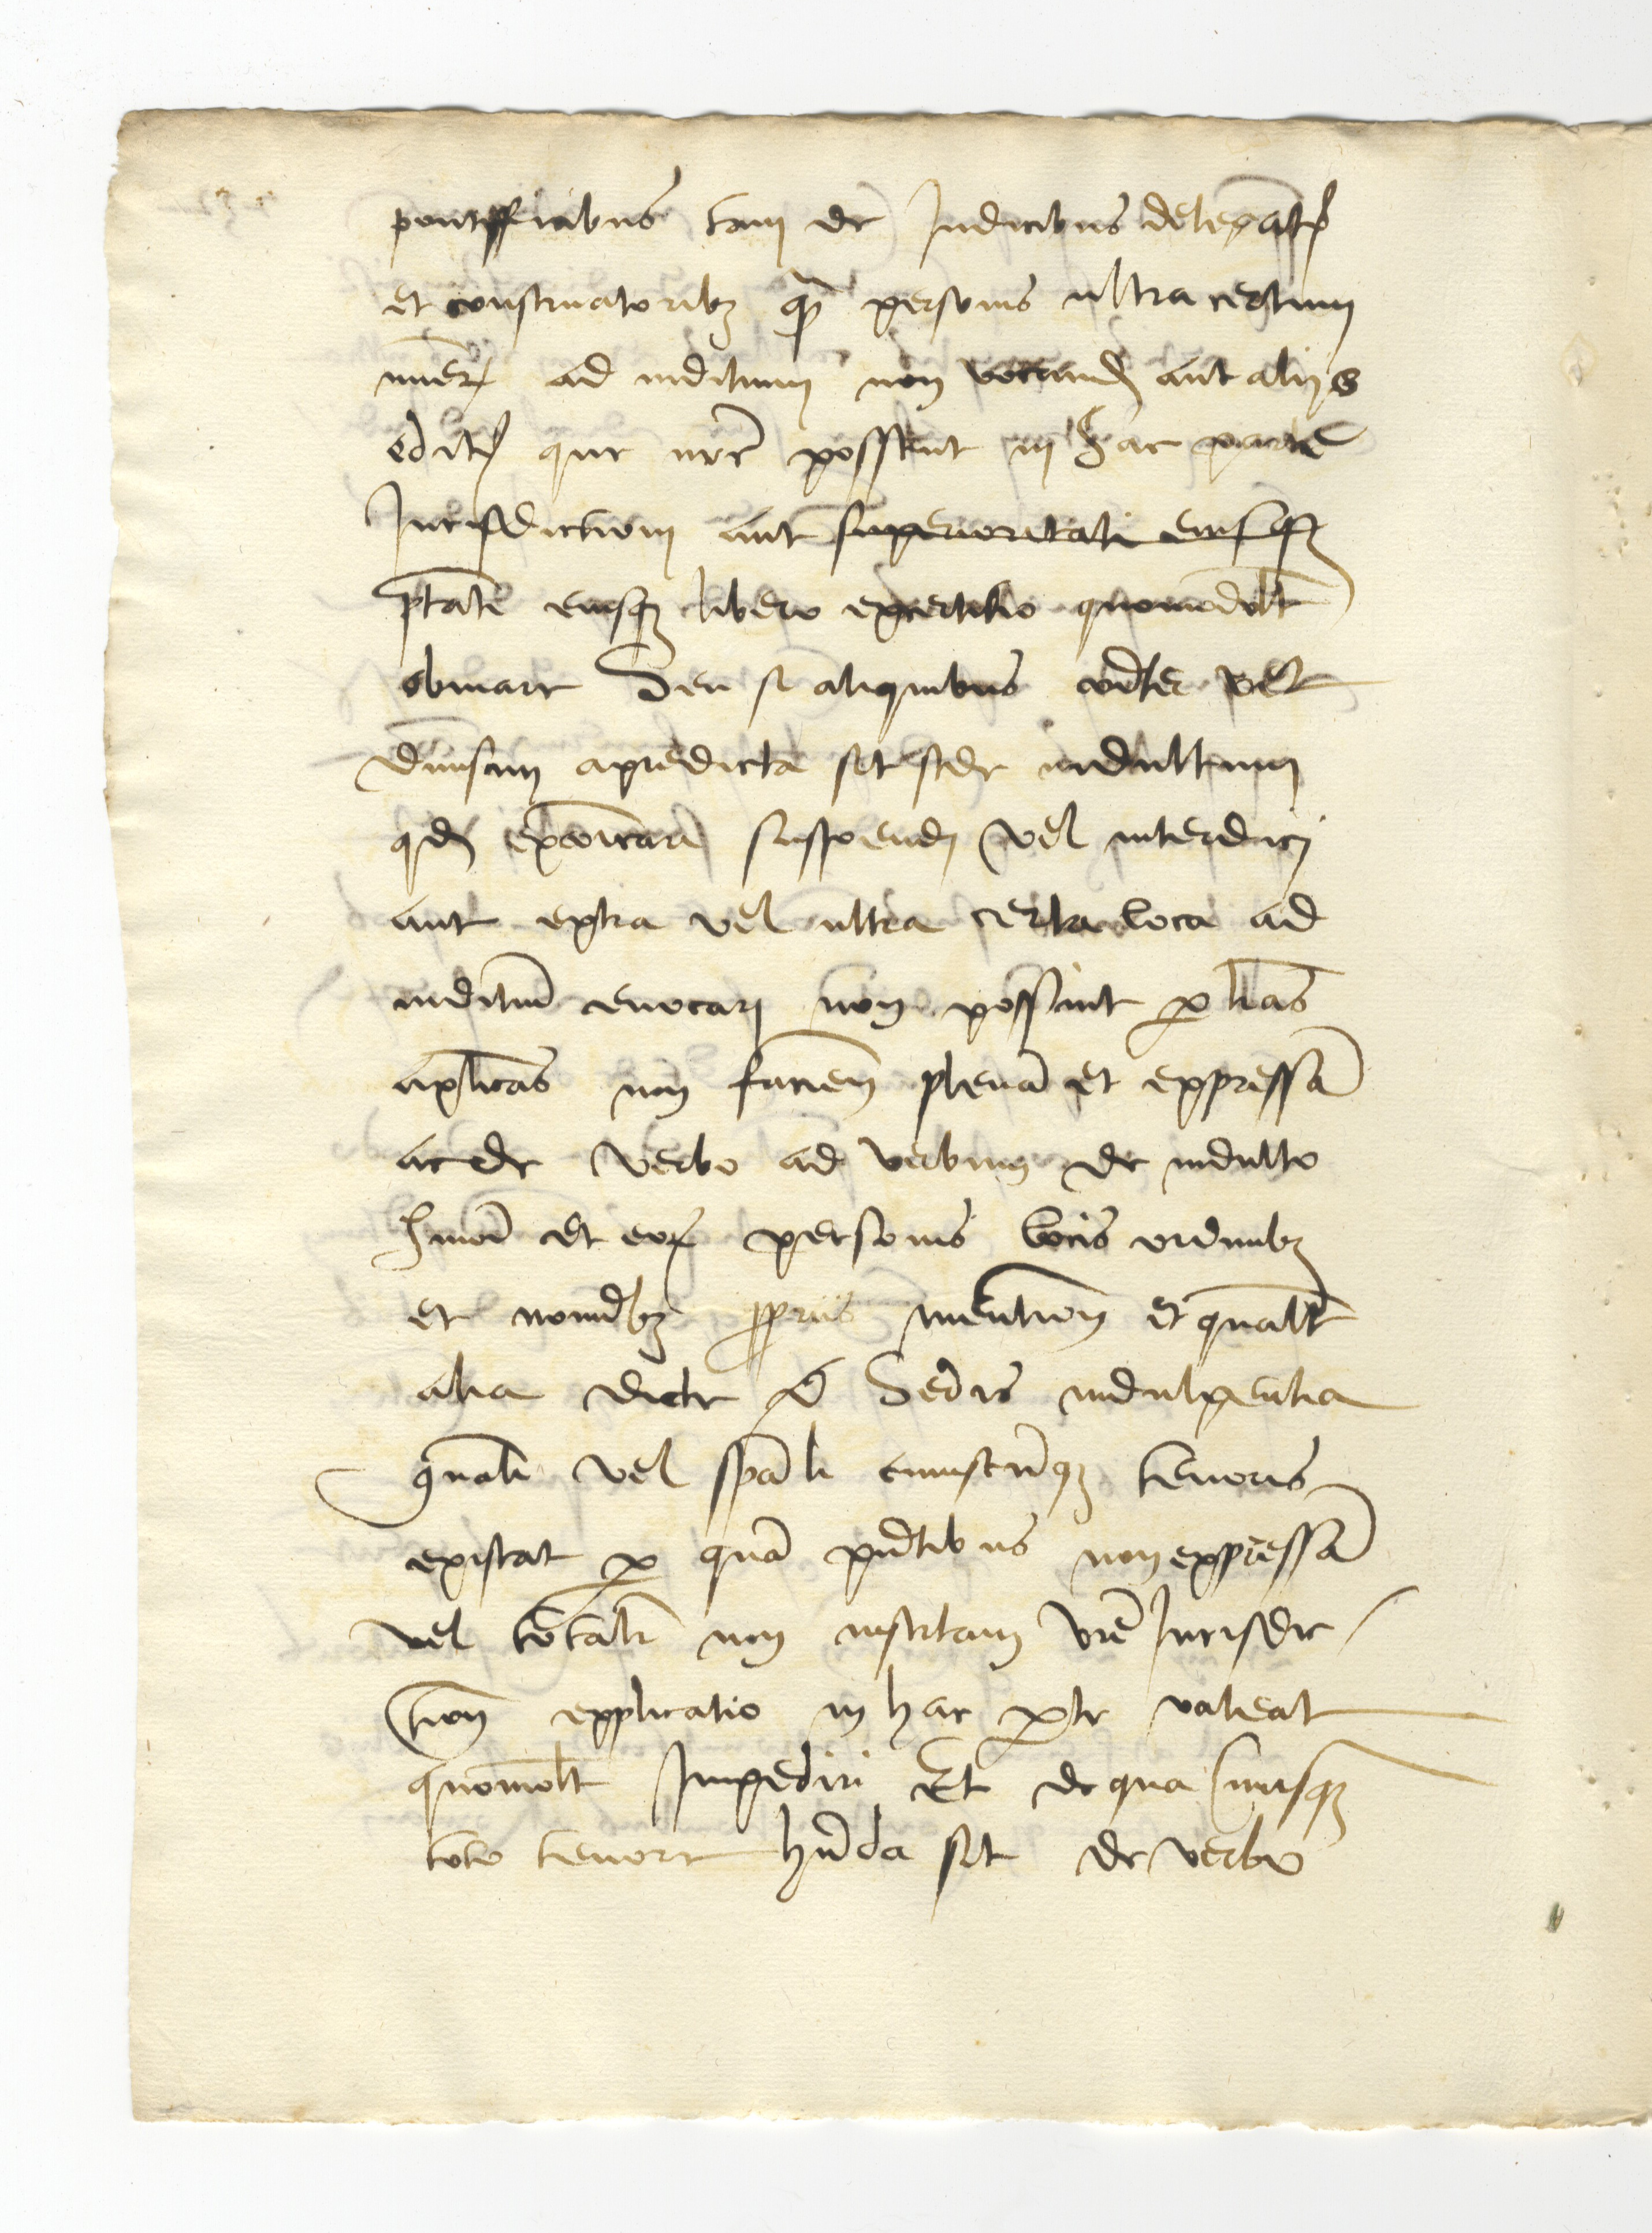 pontificibus tam de Judicibus delegatis
et conservatoribz qm personis ultra certum
numerum ad iuditium non vocand aut alijs
editis que vre possent in hac parte
Jurisdictioni aut superioritati eiusqz
ptati eiusqz libero exertitio quomodolt
obviare Seu si aliquibus coiter vel
divisim apredicta sit sede indultum
qd excoicari suspendi vel interdici
aut extra vel ultra certa loca ad
iuditiu evocari non possint p lras
aplicas non facien plena et expressa
ac de verbo ad verbum de indulto
hmoi et eor personis locis ordinibz
et nominibz ppriis mention et qualt
alia dicte Sedis indulgentia
gnali vel spali cuiuscuqz tenoris
existat p qua pntibus non expressa
vel totalr non insertam vre Jurisdic
tionis explicatio in hac pte valeat
quomolt Impediri Et de qua Cuiusqz
toto tenore hnda sit de verbo